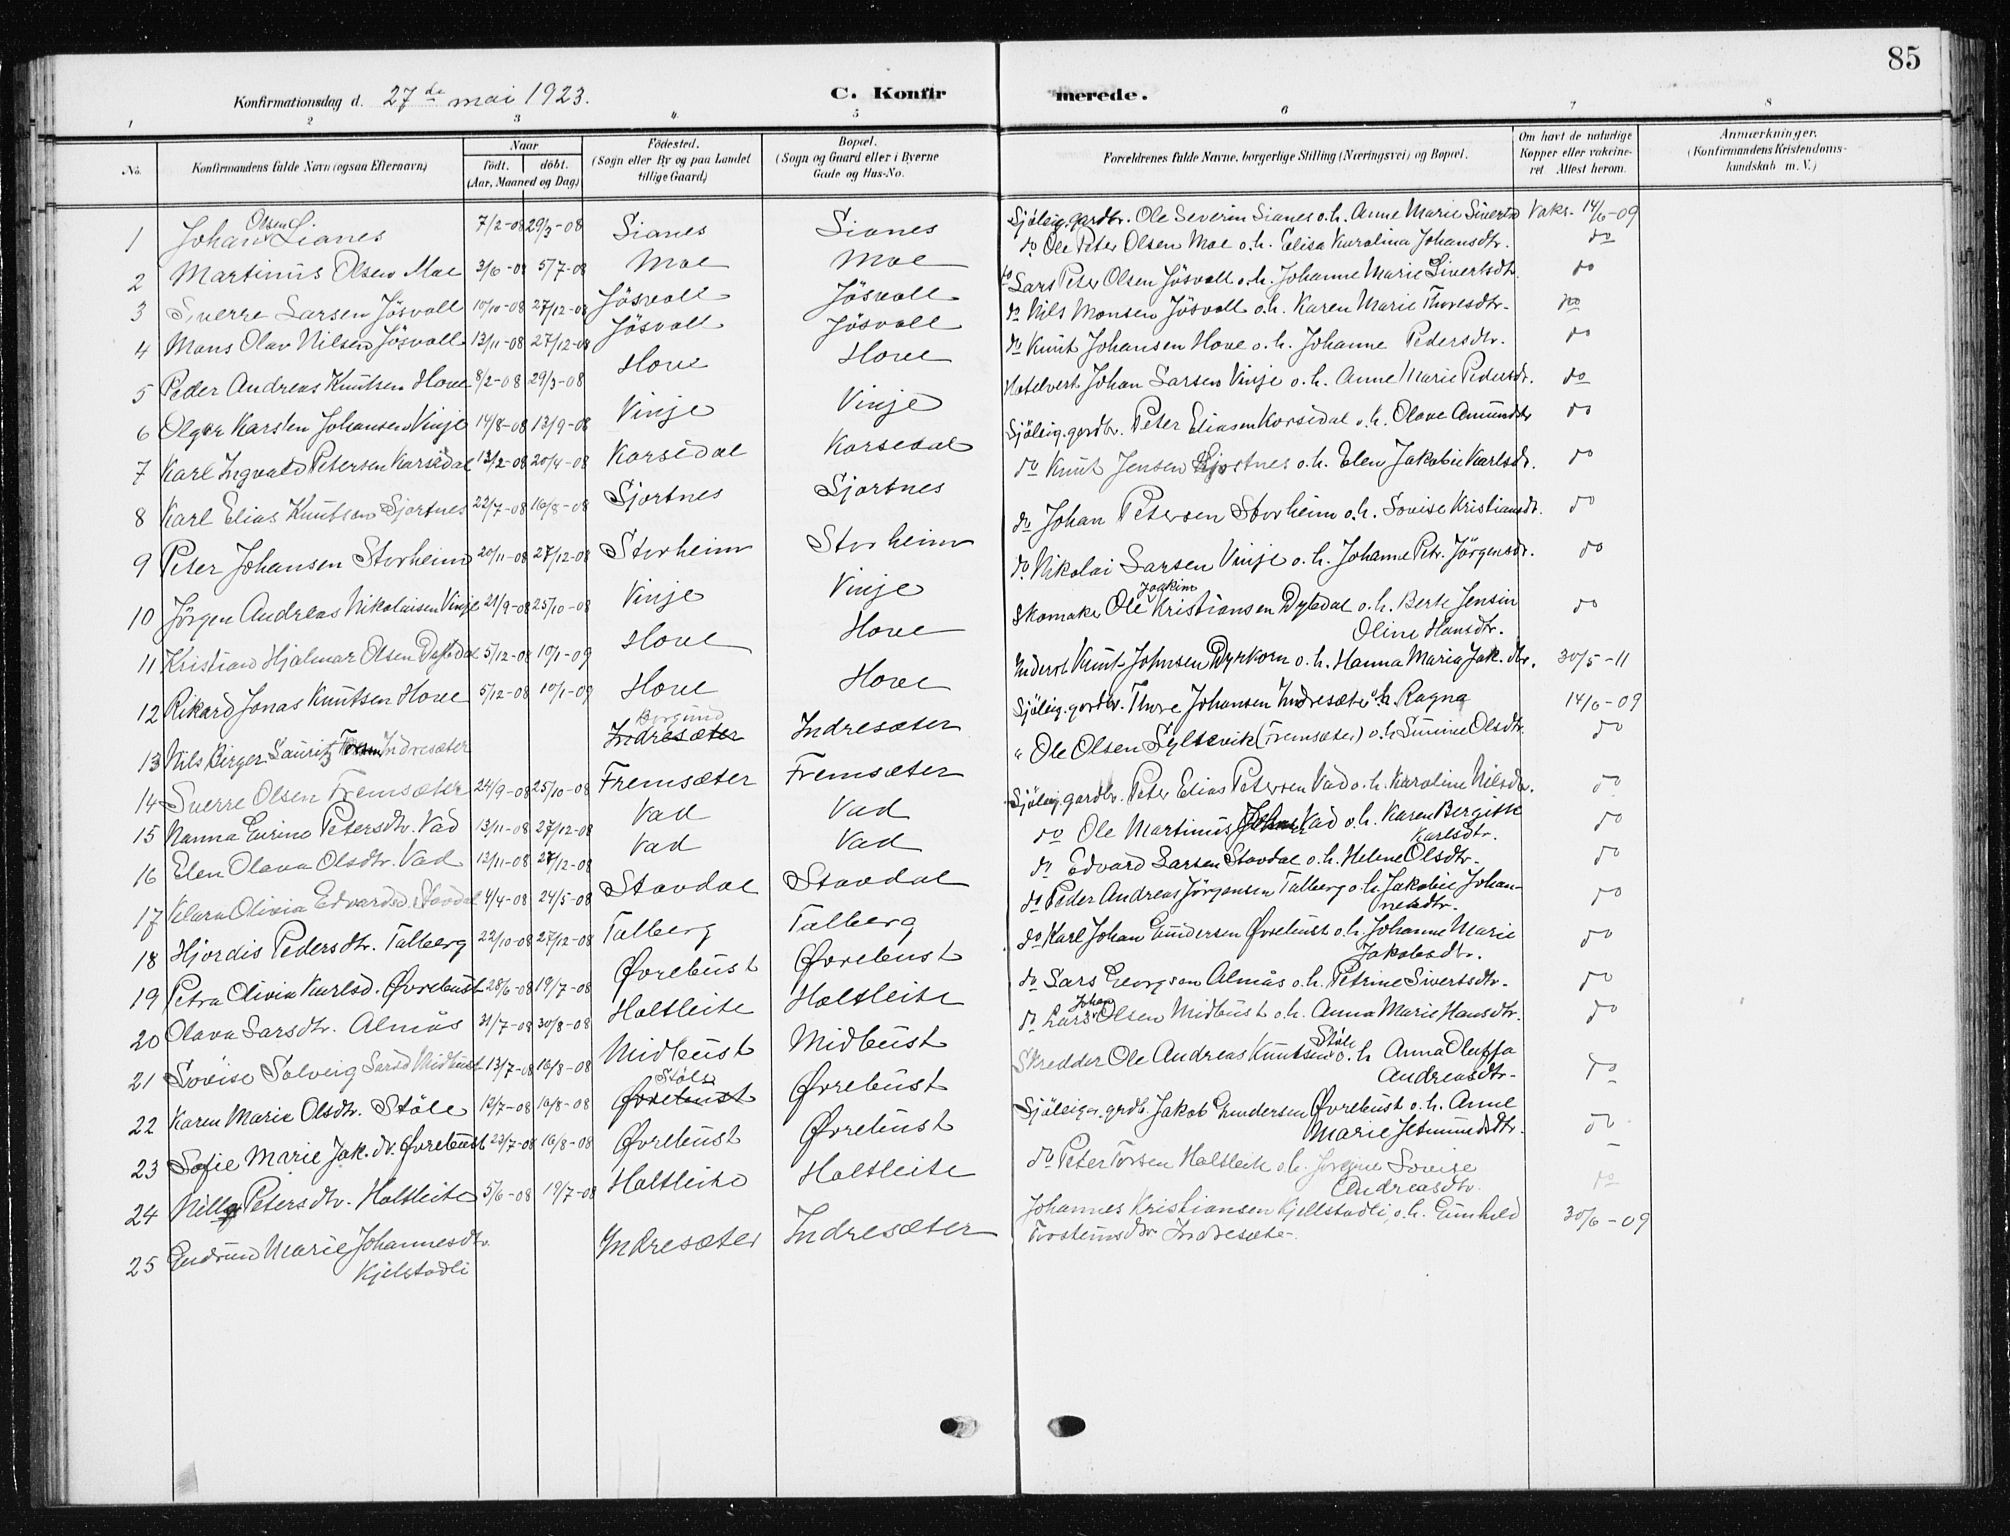 85
Konfirmationsdag d. 27de mai 1923. C. Konfirmerede.
1 2 3 4 5 6 7 8
No. Konfirmandens fulde Navn (ogsaa Efternavn) Naar født. døbt. (Aar, Maaned og Dag) Fødested. (Sogn eller By og paa Landet tillige Gaard) Bopæl. (Sogn og Gaard eller i Byerne Gade og Hus-No. Forældrenes fulde Navne, borgerlige Stilling (Næringsvei) og Bopæl. Om havt de naturlige Kopper eller vakcineret. Attest herom. Anmærkninger. (Konfirmandens Kristendomskundskab m. V.)
1 Johan Olsen Lianes 7/2-08 29/3-08 Lianes Lianes Sjöleig. gardbr. Ole Severin Lianes o.h. Anne Marie Sivertsd Vaks. 14/6-09
2 Martinus Olsen Moe 3/6-08 5/7-08 Moe Moe do Ole Peter Olsen Moe o.h. Elisa Karolina Johansdtr. do
3 Sverre Larsen Jösvoll 10/10-08 27/12-08 Jösvoll Jösvoll do Lars Peter Olsen Jösvoll o.h. Johanne Marie Sivertsdtr. do
4 Mons Olav Nilsen Jösvoll 13/11-08 27/12-08 Jösvoll Jösvoll do Nils Monsen Jösvoll o.h. Karen Marie Thoresdtr. do
5 Peder Andreas Knutsen Hove 8/2-08 29/3-08 Hove Hove do Knut Johansen Hove o.h. Johanne Pedersdtr. do
6 Olger Karsten Johansen Vinje 14/8-08 13/9-08 Vinje Vinje Hotelvert Johan Larsen Vinje o.h. Anne Marie Pedersdr. do
7 Karl Ingvald Petersen Korsedal 13/2-08 20/4-08 Korsedal Korsedal Sjöleig. gardbr. Peter Eliasen Korsedal o.h. Olave Amundsdtr do
8 Karl Elias Knutsen Ljortnes 22/7-08 16/8-08 Ljortnes Ljortnes do Knut Jensen Ljostnes o.h. Elen Jakobie Karlsdr. do
9 Peter Johansen Storheim 20/11-08 27/12-08 Storheim Storheim do Johan Petersen Storheim o.h. Lovise Kristiansdr. do
10 Jörgen Andreas Nikolaisen Vinje 21/9-08 25/10-08 Vinje Vinje do Nikolai Larsen Vinje o.h. Johanne Petr. Jörgensdr. do
11 Kristian Hjalmar Olsen Dybdal 5/12-08 10/1-09 Hove Hove Skomaker Ole Joakim Kristiansen Dybdal o.h. Berte Jensin Oline Hansdtr. do
12 Rikard Jonas Knutsen Hove 5/12-08 10/1-09 Hove Hove Knut Johnsen Dyrkorn o.h. Hanna Maria Jak. dtr. 30/5-11
13 Nils Birger Lauritz Indresæter Borgund Indresæter Indresæter Sjöleig. gardbr. Thore Johansen Indresæter o.h. Ragna 14/6-09
14 Sverre Olsen Fremsæter 24/9-08 25/10-08 Fremsæter Fremsæter " Ole Olsen Syltevik (Fremsæter) o.h. Olsdtr. do
15 Nanna Petersdtr. Vad 13/11-08 27/12-08 Vad Vad Sjöleig. gardbr. Peter Elias Petersen Vad o.h. Karoline Nilsdtr. do
16 Elen Olava Olsdtr. Vad 12/11-08 27/12-08 Vad Vad do Ole Martinus Vad o.h. Karen Bergitte Karlsdtr. do
17 Klara Olivia Edvardsd. Stavdal 4/4-08 24/5-08 Stavdal Stavdal do Edvard Larsen Stavdal o.h. Helene Olsdtr. do
18 Hjördis Pedersdtr. Talberg 22/10-08 27/12-08 Talberg Talberg do Peder Andreas Jörgensen Talberg o.h. Jakobie Johannesdtr. do
19 Petra Olivia Karlsd. Øvrebust 28/6-08 19/7-08 Øvrebust Øvrebust do Karl Johan Gundersen Øvrebust o.h. Johanne Marie Jakobsdtr. do
20 Olava Larsdtr. Almås 31/7-08 30/8-08 Holtleite Holtleite do Lars Georgsen Almås o.h. Petrine Sivertsdtr. do
21 Lovise Solveig Larsd Midbust 13/7-08 16/8-08 Midbust Midbust do Lars Johan Olsen Midbust o.h. Anna Marie Hansdtr. do
22 Karen Marie Olsdtr. Stöle 12/7-08 16/8-08 Stöle Øvrebust Øvrebust Skredder Ole Andreas Knutsen Støle o.h. Anna Oluffa Andreasdtr. do
23 Sofie Marie Jak. dr. Øvrebust 23/7-08 16/8-08 Øvrebust Øvrebust Sjöleig. grdb. Jakob Gundersen Øvrebust o.h. Anne Marie Jetmundsdtr. do
24 Nilla Petersdtr. Holtleite 5/6-08 19/7-08 Holtleite Holtleite do Peter Torsen Holtleite o.h. Jorgine Lovise Andreasdtr. do
25 Gudrun Marie Johannesdtr. Kjelstadli Indresæter Indresæter Johannes Kristiansen Kjellstadli o.h. Gunhild Torsteinsdtr Indresæter 30/6-09